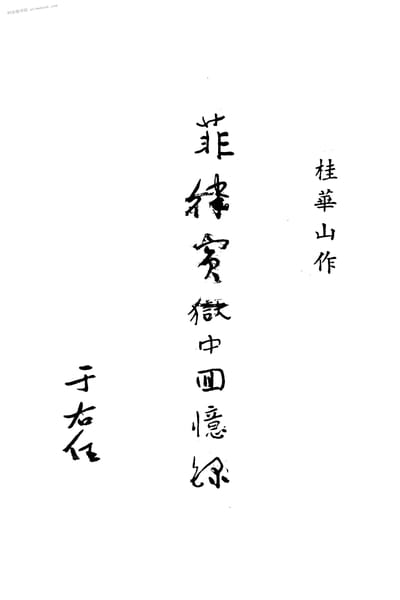 桂華山作
菲律賓獄中回憶錄
于右任